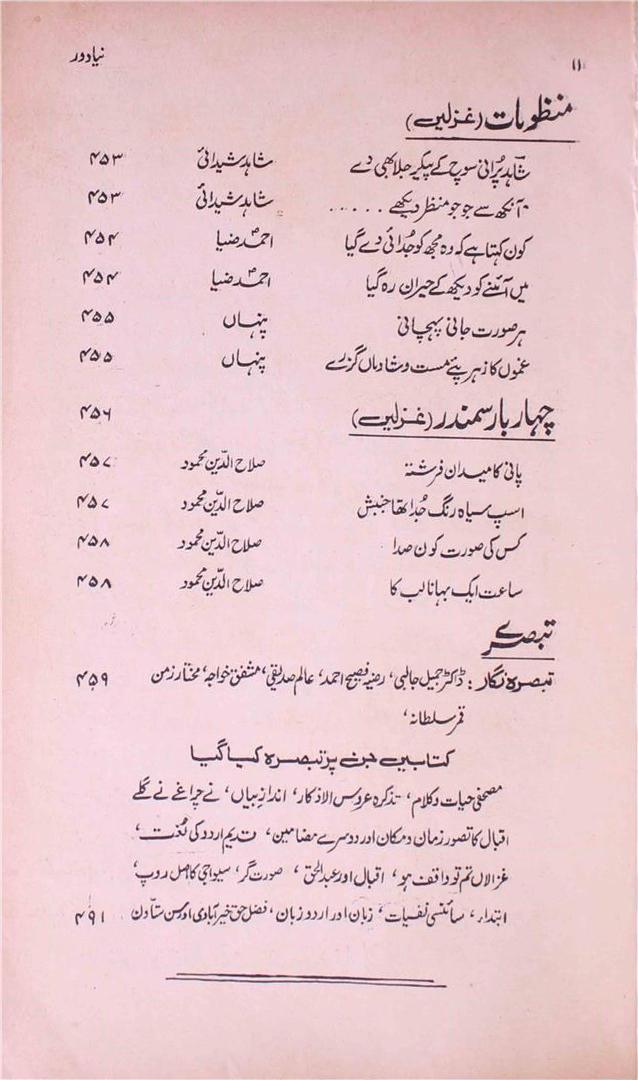 ۱۱ نیا دور
منظومات (غزلیں)
شاہد پُرانی سوچ کے پیکر جلا بھی دے شاہد شیدائی ۴۵۳
آنکھ سے جو جو منظر دیکھے ..... شاہد شیدائی ۴۵۳
کون کہتا ہے کہ وہ مجھ کو جُدائی دے گیا احمد ضیا ۴۵۴
میں آئینے کو دیکھ کے حیران رہ گیا احمد ضیا ۴۵۴
ہر صورت جانی پہچانی پنہاں ۴۵۵
غموں کا زہر پئے مست و شاداں گزرے پنہاں ۴۵۵
چہار بار سمندر (غزلیں) ۴۵۶
پانی کا میدان فرشتہ صلاح الدّین محمود ۴۵۷
اسپ سیاہ رنگ جُدا تھا جنبش صلاح الدّین محمود ۴۵۷
کس کی صورت کون صدا صلاح الدّین محمود ۴۵۸
ساعت ایک بہانا لب کا صلاح الدّین محمود ۴۵۸
تبصرے
تبصرہ نگار: ڈاکٹر جمیل جالبی، رضیہ فصیح احمد، عالم صدیقی، مشفق خواجہ، مختار زمن ۴۵۹
قمر سلطانہ،
کتابیں جن پر تبصرہ کیا گیا
مصحفی حیات و کلام، تذکرہ عروس الاذکار، اندازِ بیاں، نے چراغے نے گلے
اقبال کا تصور زمان و مکان اور دوسرے مضامین، قدیم اردو کی لُغت،
غزالاں تم تو واقف ہو، اقبال اور عبدالحق، صورت گر، سیوا جی کا اصل روپ،
ابتدار، سائنسی نفسیات، زبان اور اردو زبان، فضل حق خیر آبادی اور سن ستاون ۴۹۱